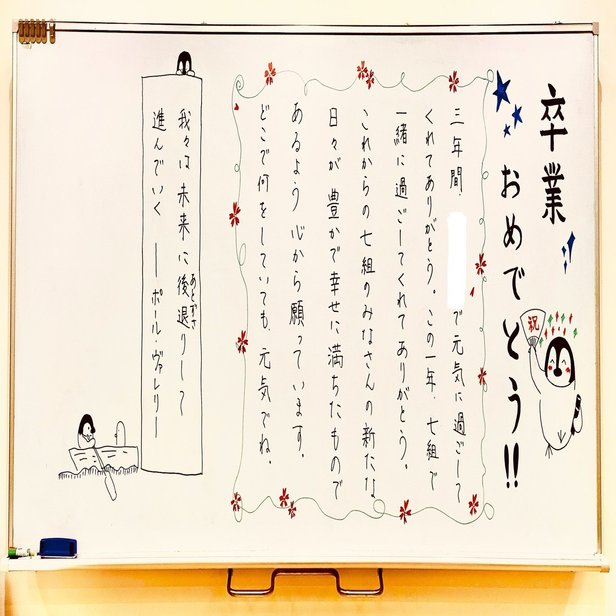 卒業
おめでとう!!
祝
三年間、
で元気に過ごして
くれてありがとう。この一年、七組で
一緒に過ごしてくれてありがとう。
これからの七組のみなさんの新たな
日々が豊かで幸せに満ちたもので
あるよう心から願っています。
どこで何をしていても、元気でね。
我々は未来に後退りして
あとずさ
進んでいく ― ポール・ヴァレリー